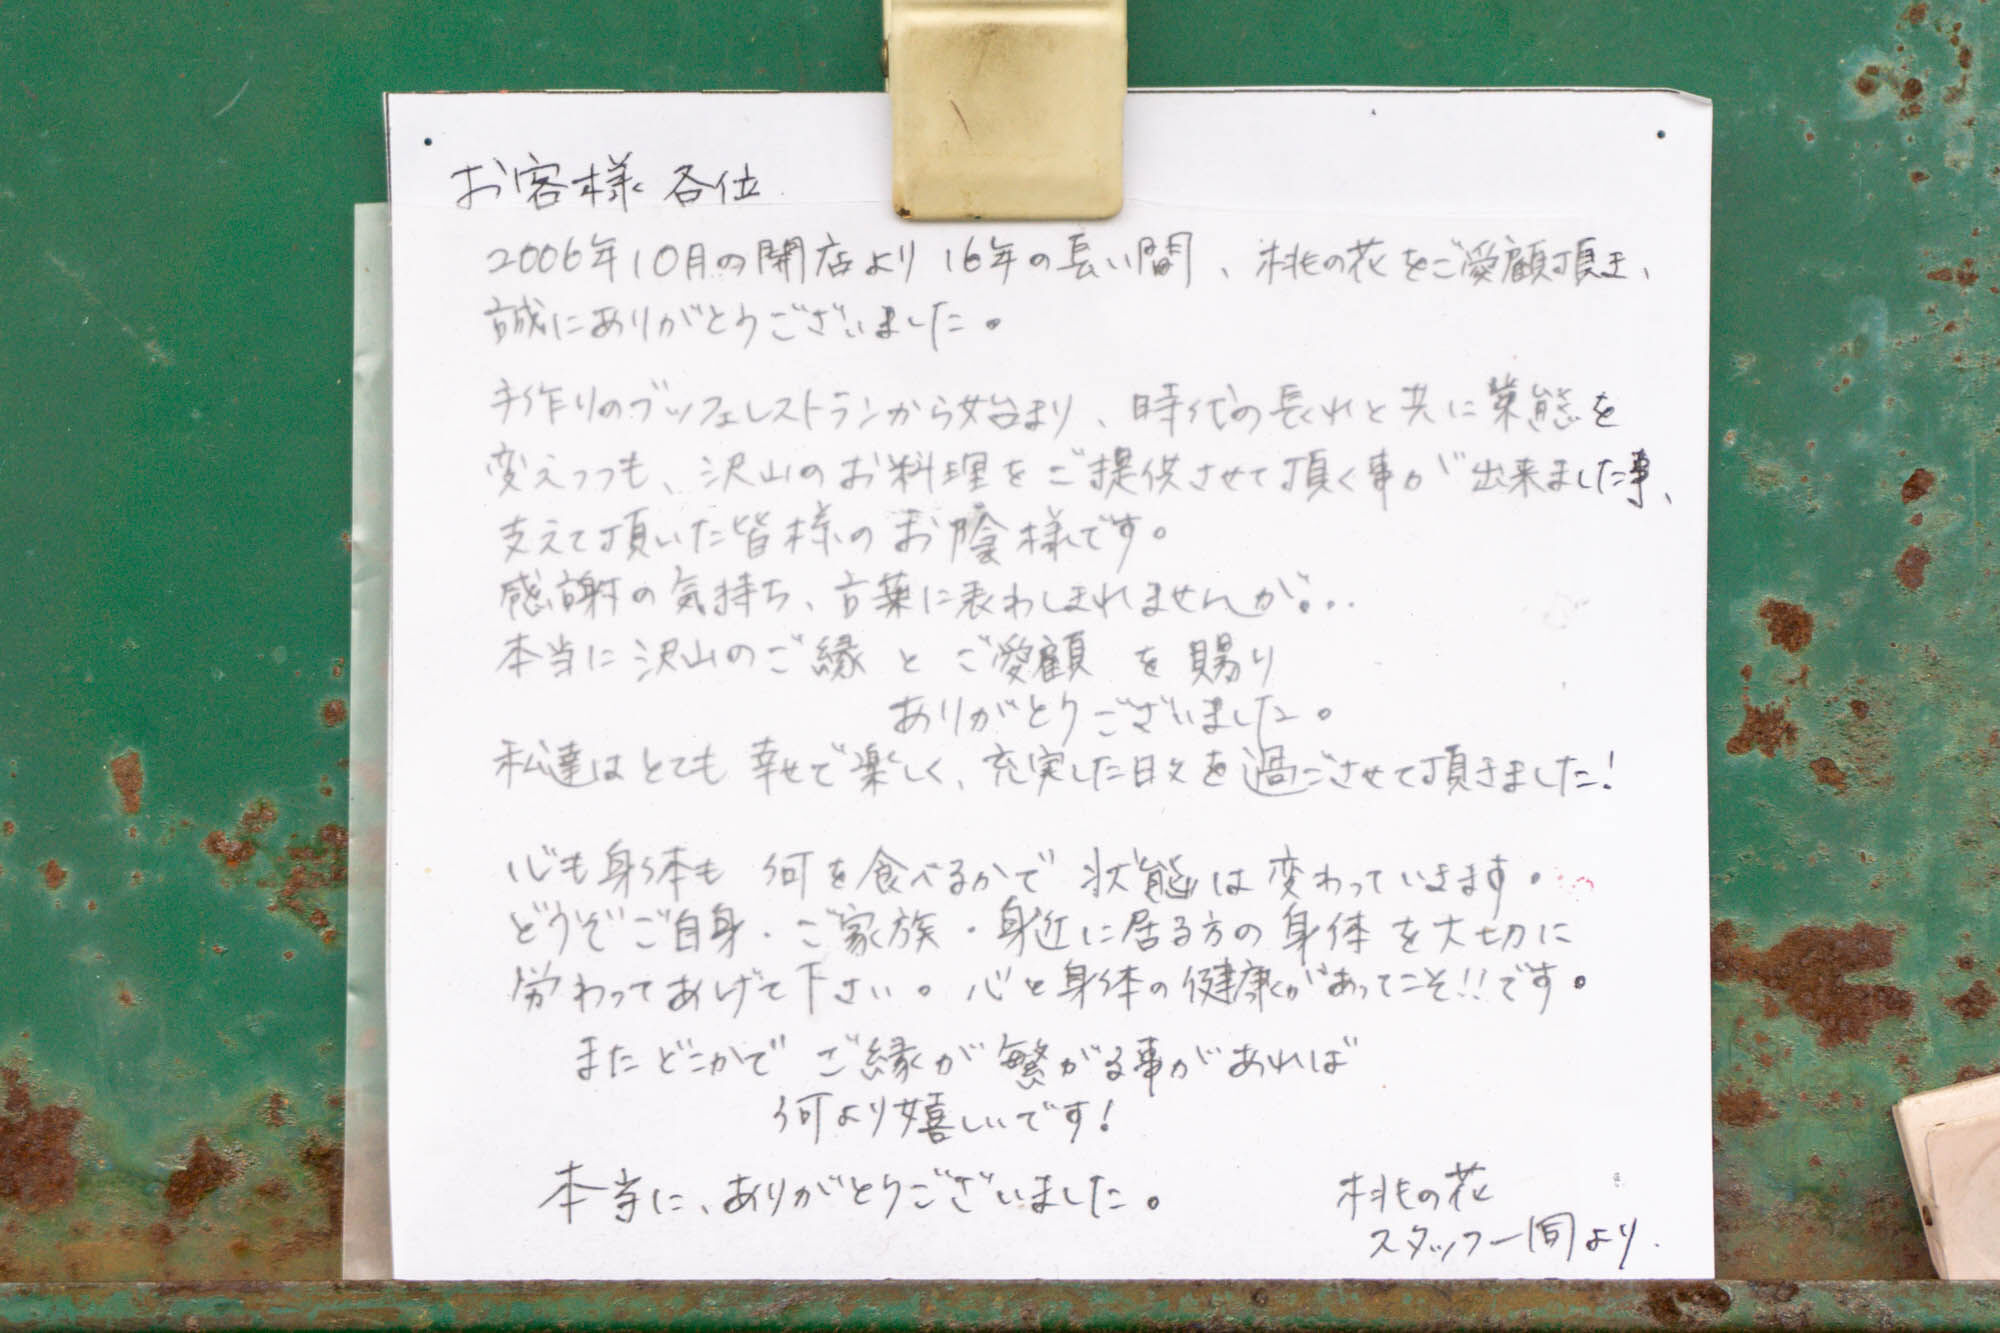 お客様 各位
2006年10月の開店より 16年の長い間、桃の花をご愛顧頂き、
誠にありがとうございました。
手作りのブッフェレストランから始まり、時代の長れと共に業態を
変えつつも、沢山のお料理をご提供させて頂く事が出来ました事、
支えて頂いた皆様のお陰様です。
感謝の気持ち、言葉に表わしきれませんが...
本当に沢山のご縁とご愛顧を賜り
ありがとうございました。
私達はとても幸せで楽しく、充実した日々を過ごさせて頂きました!
心も身体も 何を食べるかで 状態は変わっていきます。
どうぞご自身・ご家族・身近に居る方の身体を大切に
労わってあげて下さい。心と身体の健康があってこそ!!です。
またどこかで ご縁が繋がる事があれば
何より嬉しいです!
本当に、ありがとうございました。
桃の花
スタッフ一同より.